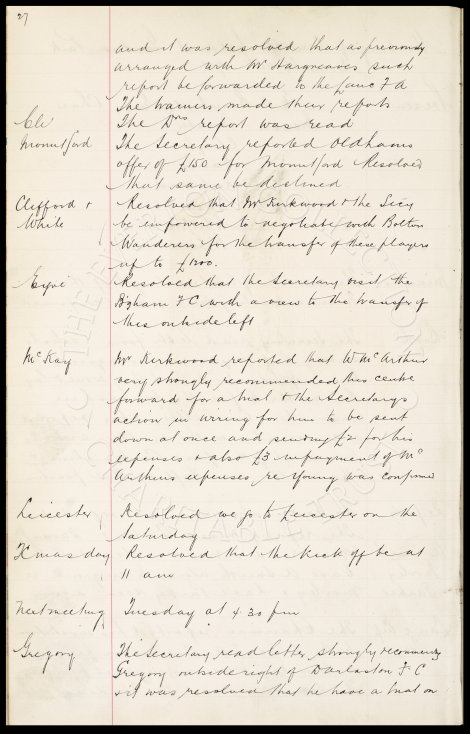 27
and it was resolved that as previously
arranged with Mr Hargreaves such
report be forwarded to the Lanc F A
The Trainers made their reports
The Drs report was read
The Secretary reported Oldhams
offer of £150 for Resolved
that same be declined
Clifford +
White
Resolved that Mr Kirkwood + the Secy
be empowered to negotiate with Bolton
Wanderers for the transfer of these players
up to £1200.
Resolved that the Secretary visit the
F C with a view to the transfer of
this outside left
McKay
Mr Kirkwood reported that W McArthur
very strongly recommended this centre
forward for a trial + the Secretarys
action in wiring for him to be sent
down at once and sending £2 for his
expenses + also £3 repayment of Mc
Arthurs expenses re Young was confirmed
Leicester
Resolved we go to Leicester on the
Saturday
Xmas day
Resolved that the Kick off be at
11 am
Next meeting
Tuesday at 4.30 pm
Gregory
The Secretary read letter strongly recommending
Gregory outside right of Darlaston F C
+ it was resolved that he have a trial on